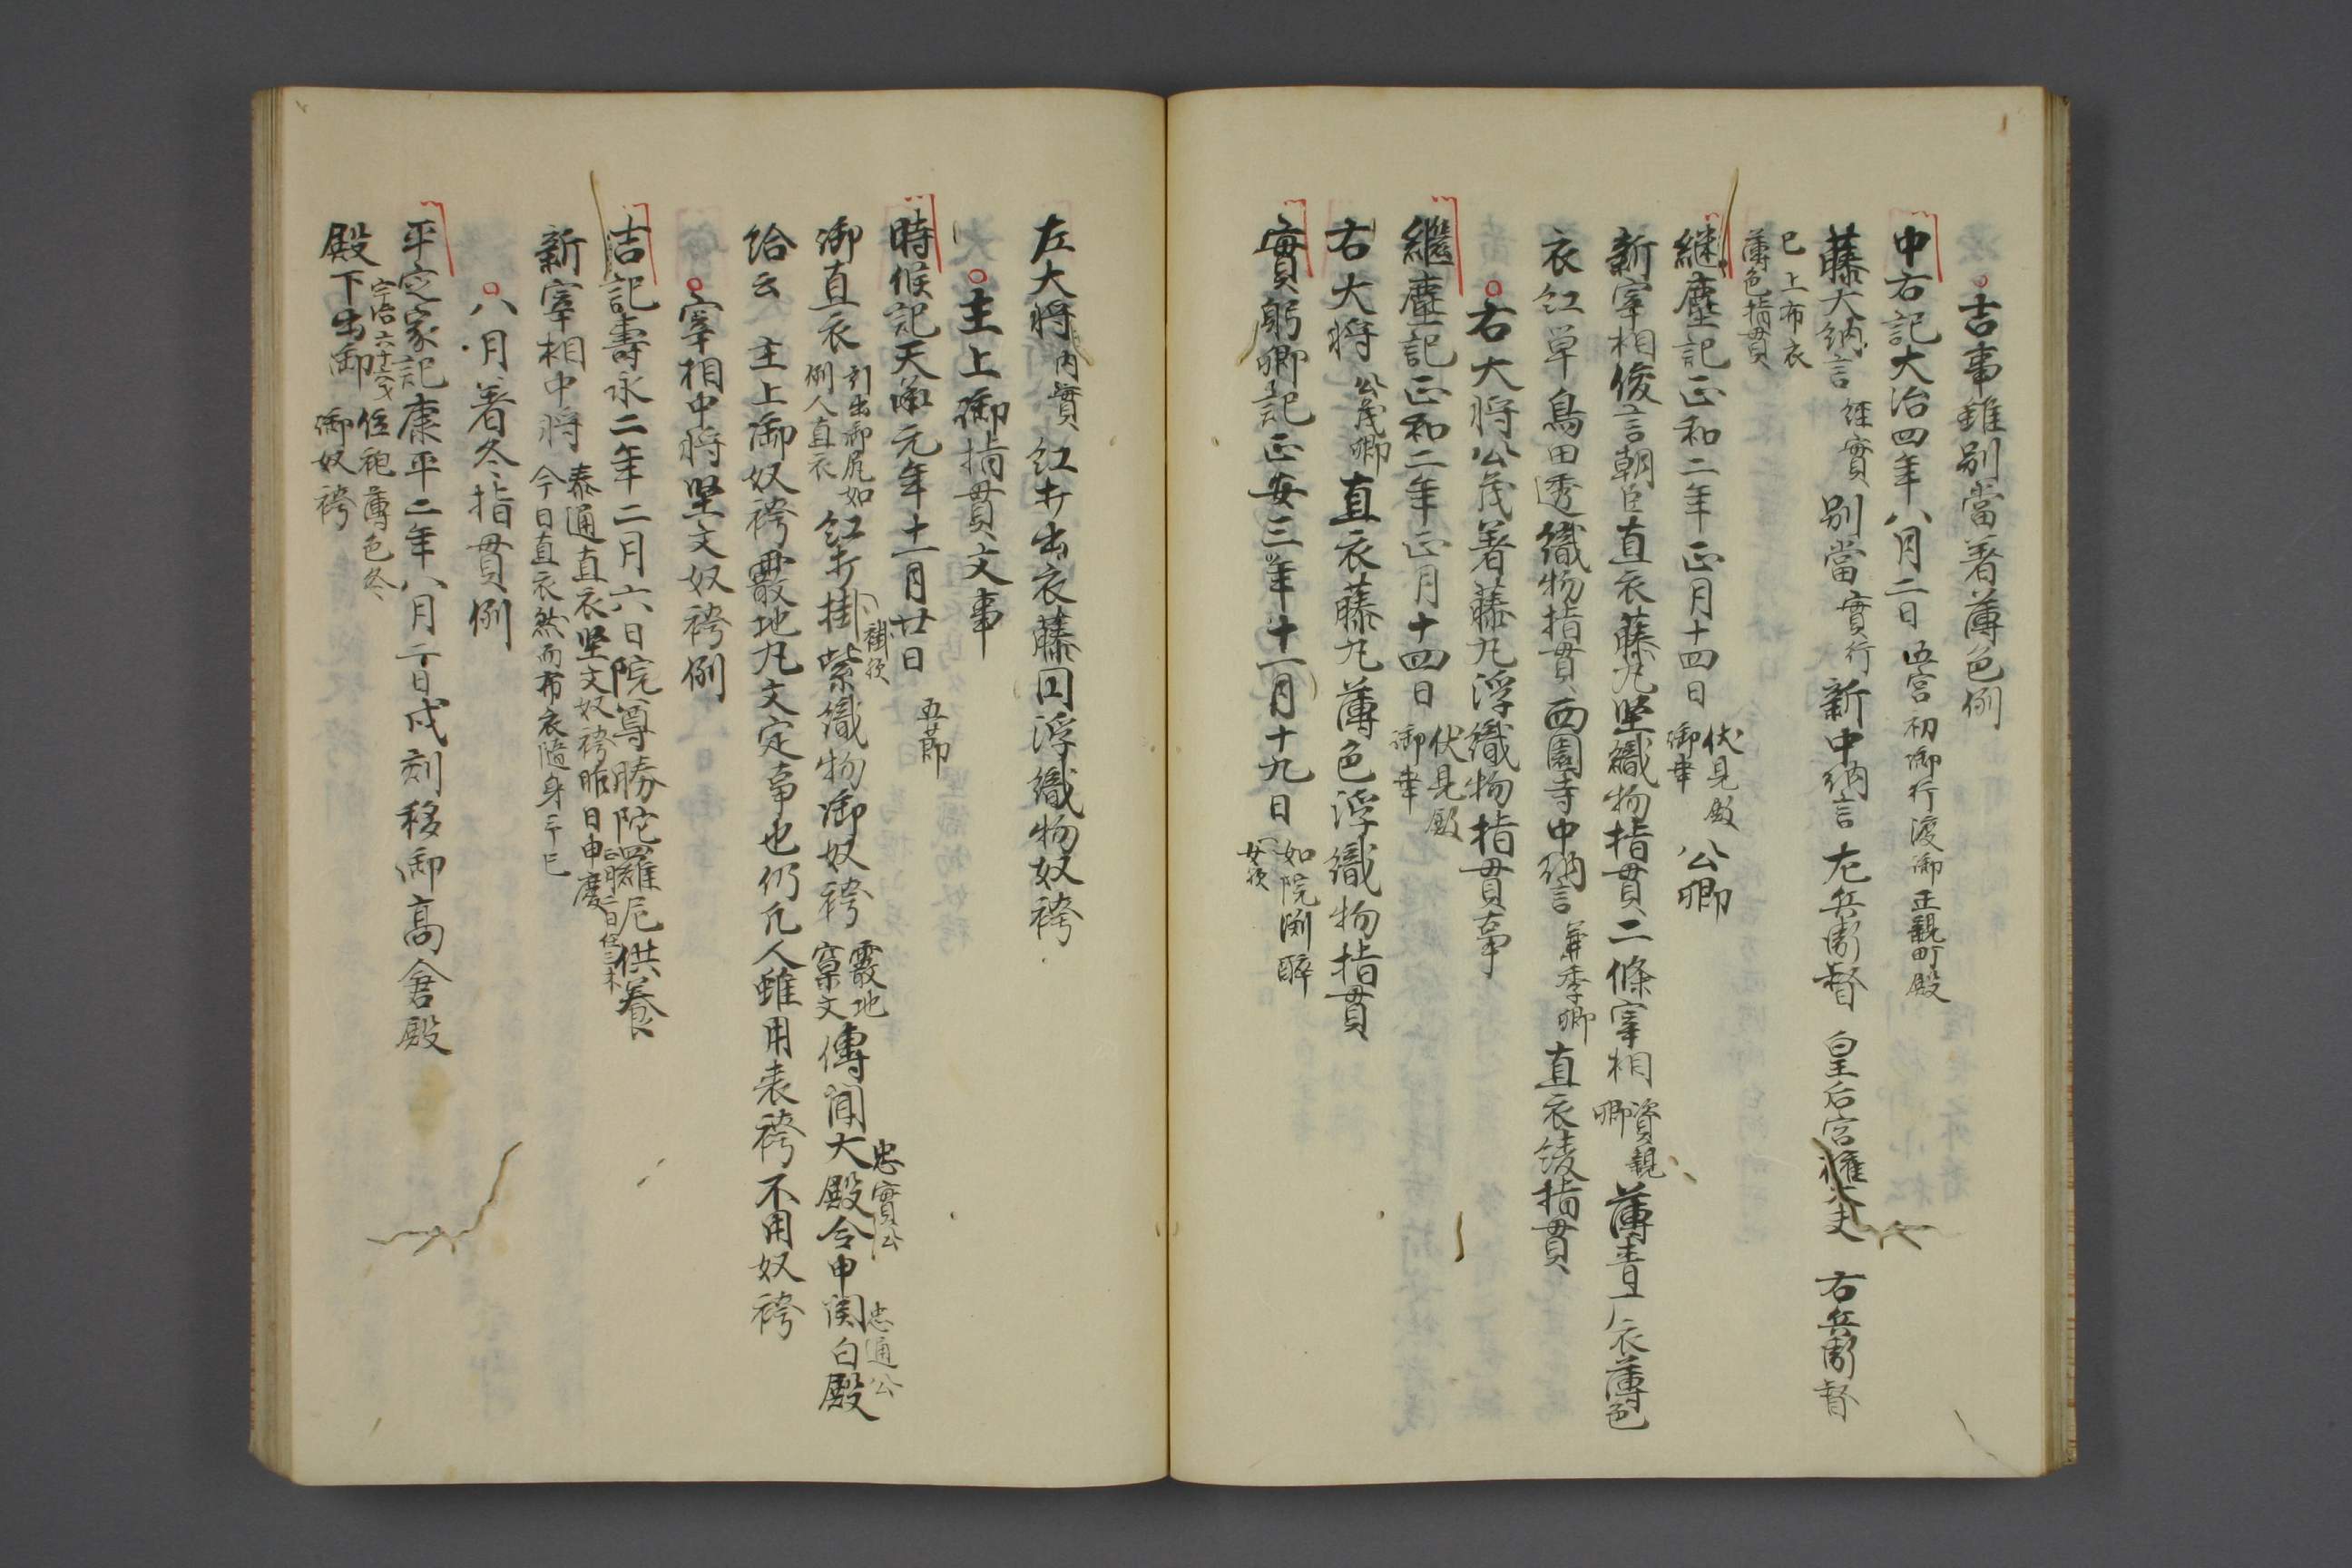 吉事雖別當着薄色例
中右記大治四年八月二日 五宮初御行渡御正親町殿
藤大納言 経實 別當 實行 新中納言 左兵衛督 皇后宮権大夫 右兵衛督
已上布衣
薄色指貫
継塵記正和二年正月十四日 伏見殿御幸 公卿
新宰相俊言朝臣直衣藤丸堅織物指貫二條宰相 資親卿 薄青 衣薄色
衣紅単鳥田透織物指貫西園寺中納言 兼季卿 直衣綾指貫
右大将公茂着藤丸浮織物指貫事
繼塵記正和二年正月十四日 伏見殿御幸
右大将 公茂卿 直衣藤丸薄色浮織物指貫
實躬卿記正安三年十一月十九日 如院渕醉
左大将 内實 紅打出衣藤圓浮織物奴袴
主上御指貫文事
時信記天承元年十一月廿日 五節
御直衣 引出御尻如例人直衣 紅打掛紫織物御奴袴 霰地窠文 傳聞大殿 忠實公 令申関白殿 忠通公
給云 主上御奴袴霰地丸文定事也仍凡人雖用表袴不用奴袴
宰相中将堅文奴袴例
吉記壽永二年二月六日院尊勝陀羅尼供養
新宰相中将 泰通直衣堅文奴袴昨日申慶 今日直衣然而布衣随身
八月着冬指貫例
平定家記康平二年八月二日戌刻移御高倉殿
殿下出御 位袍薄色冬御奴袴